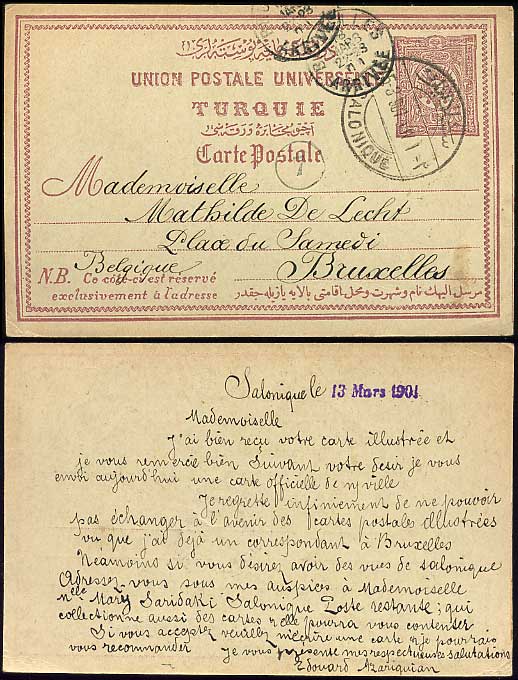 UNION POSTALE UNIVERSELLE
TURQUIE
Carte Postale
Mademoiselle
Mathilde De Lecht
Place du Samedi
Belgique Bruxelles
N.B. Ce côté est réservé
exclusivement à l'adresse
ARRIVÉE
ARRIVÉE
SALONIQUE
1
Salonique le 13 Mars 1901
Mademoiselle
J'ai bien reçu votre carte illustrée et
je vous remercie bien Suivant votre desir je vous
envoi aujourd'hui une carte officielle de n/ville
Je regrette infiniement de ne pouvoir
pas échanger à l'avenir des cartes postales illustrées
vu que j'ai déjà un correspondant à Bruxelles
Néamoins si vous désirez avoir des vues de salonique
Adressez-vous sous mes auspices à Mademoiselle
Mary Saridaki Salonique Poste restante; qui
collectionne aussi des cartes elle pourra vous contenter
Si vous acceptez veuillez m'écrire une carte je pourrais
vous recommander Je vous présente mes respectueuses salutations
Edouard Nazriquian